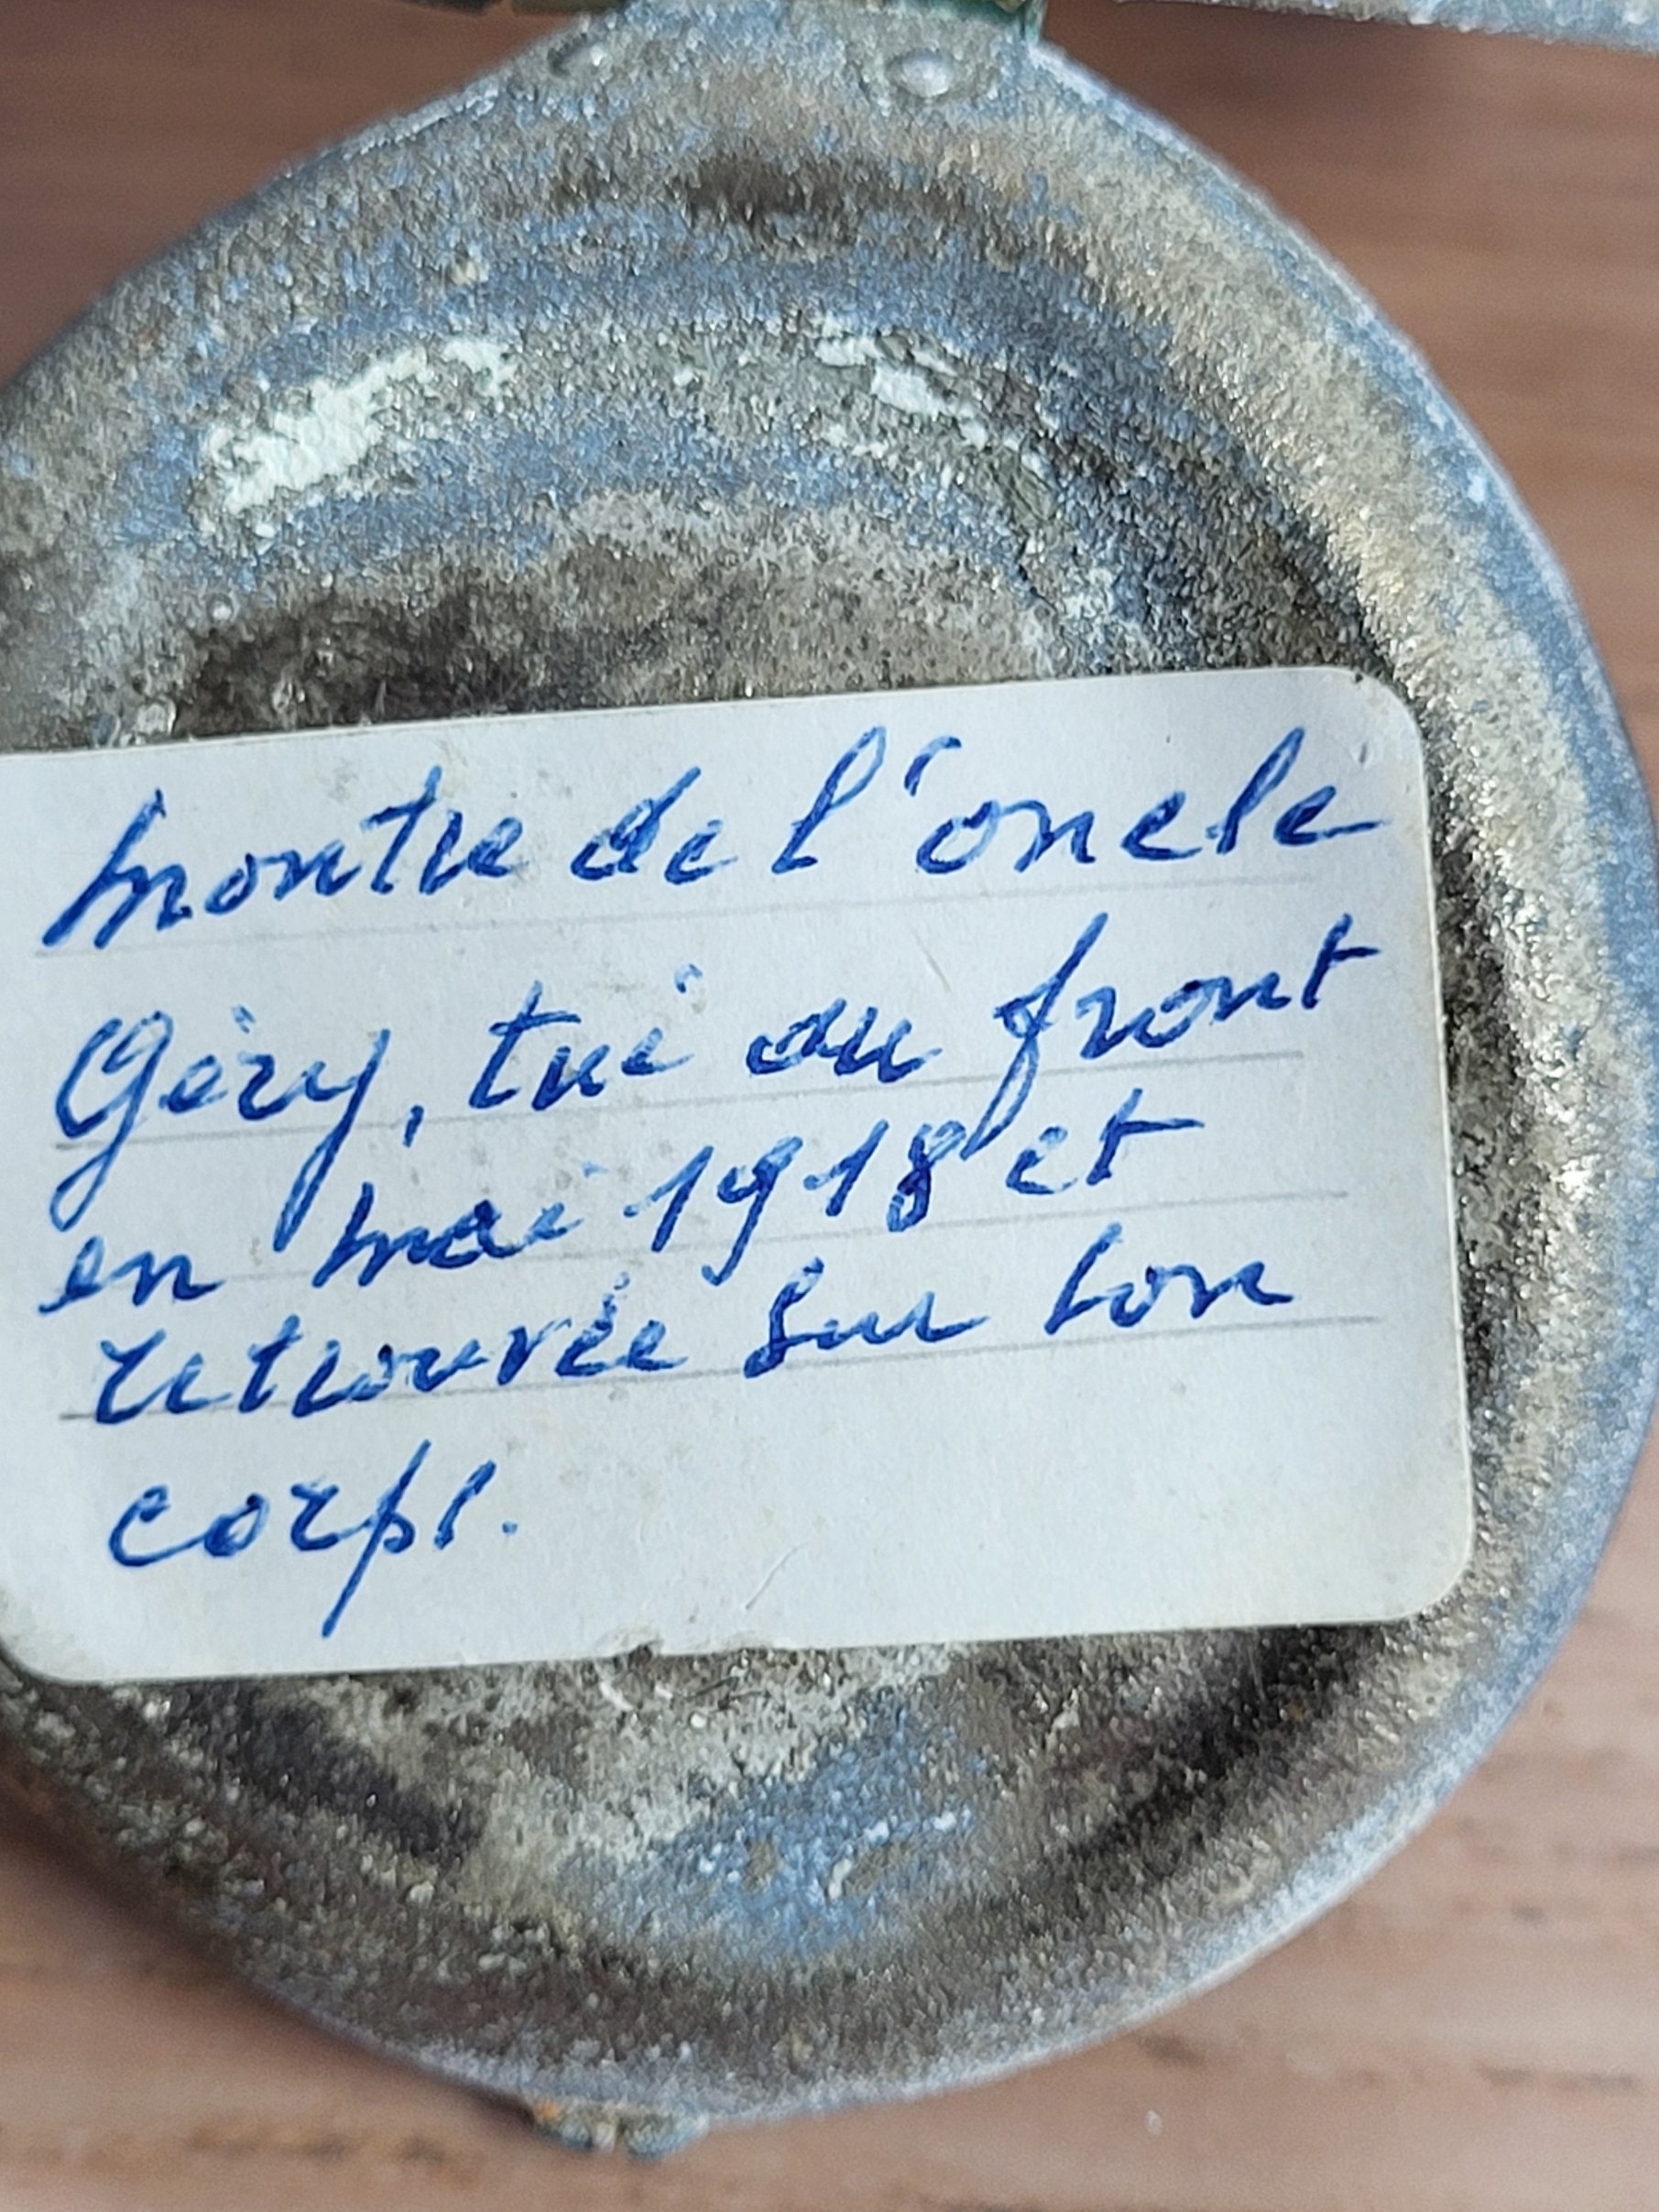 montre de l'oncle
Géry, tué au front
en mai 1918 et
retrouvée sur son
corps.